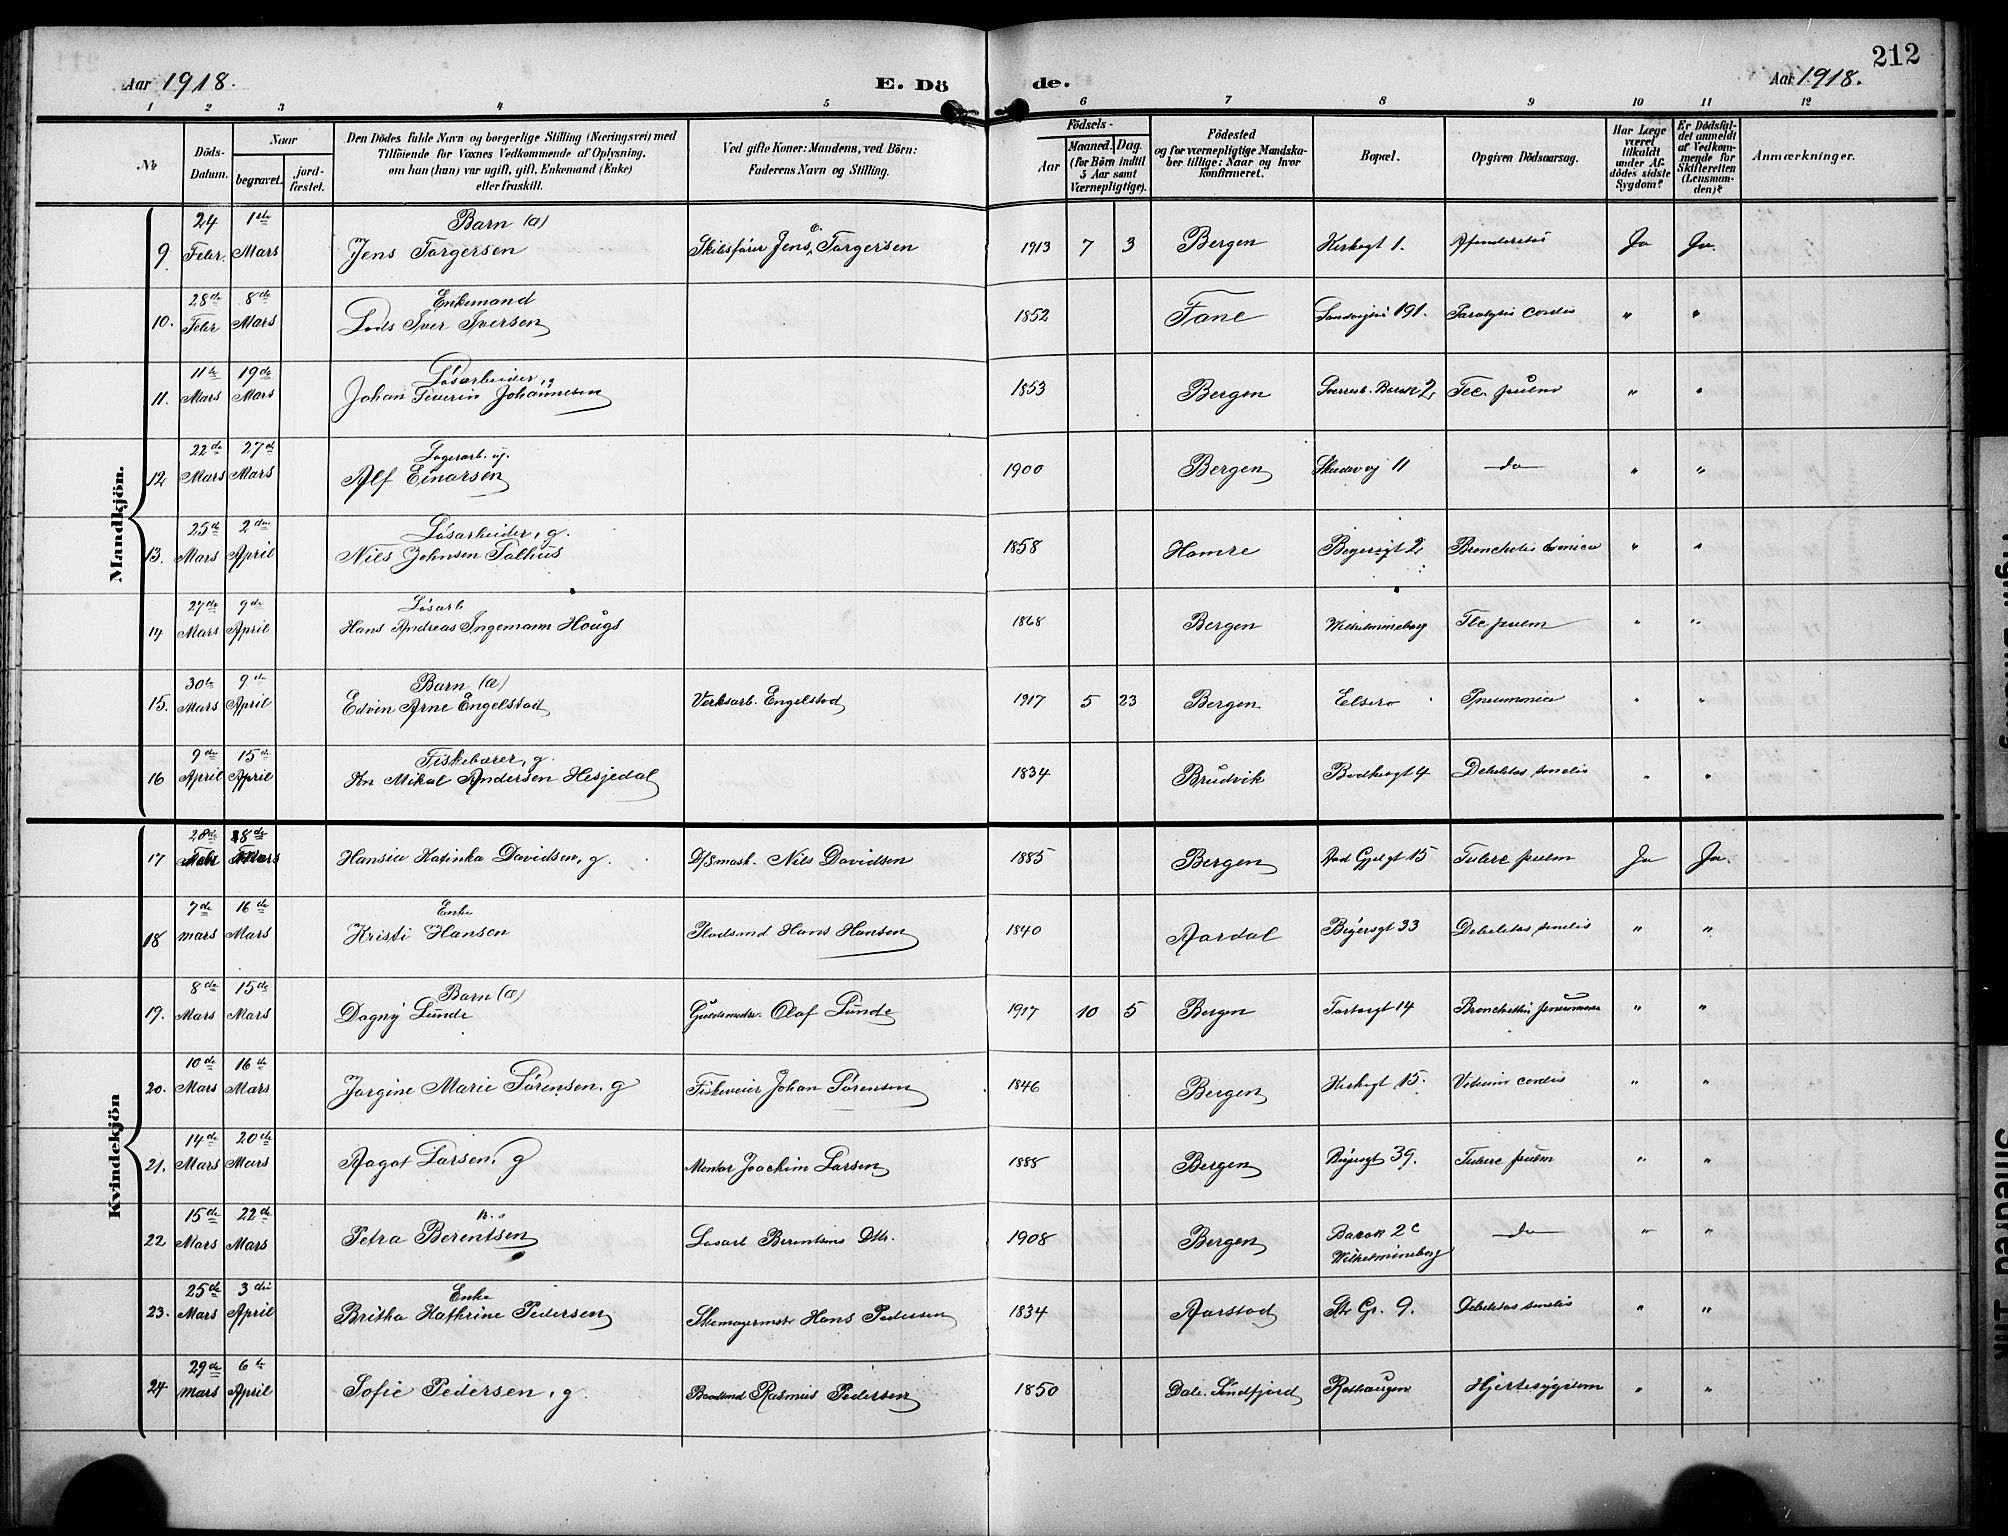 212
Aar 1918. E. Dö de. Aar 1918.
1 2 3 4 5 6 7 8 9 10 11 12
No Döds-Datum. Naar begravet. jord-fæstet. Den Dödes fulde Navn og borgerlige Stilling (Næringsvei) med Tilföiende for Voxnes Vedkommende af Oplysning, om han (hun) var ugift, gift, Enkemand (Enke) eller fraskilt. Ved gifte Koner: Mandens, ved Börn: Faderens Navn og Stilling. Födsels- Aar Maaned. Dag. (for Börn indtil 5 Aar samt Værnepligtige). Födested og for værnepligtige Mandskaber tillige: Naar og hvor konfirmeret. Bopæl. Opgiven Dödsaarsag. Har Læge været tilkaldt under Afdödes sidste Sygdom? Er Dödsfaldet anmeldt af Vedkommende for Skifteretten (Lensmanden)? Anmærkninger.
Mandkjön.
9. 24 Febr. 1ste Mars Barn (æ) Jens Torgersen Skibsfører Jens Torgersen 1913 7 3 Bergen Kirkegt 1. Ja Ja.
10. 28de Febr 8de Mars Enkemand Iver Iversen 1852 Fane Sandvigsv 191. Paralysis cordis " "
11. 11te Mars 19de Mars Løsarbeider, g Johan Severin Johannesen 1853 Bergen Barak 2, pulm " "
12 22de Mars 27de Mars Lagerarb. ug. Alf Einarsen 1900 Bergen 11 do " "
13. 25de Mars 2den April Løsarbeider, g. Nils Johnsen 1858 Hamre Beyersgt 2 Bronchitis cronica " "
14 27de Mars 9de April Løsarb Hans Andreas Ingemann Hougs 1868 Bergen Wilhelmineborg Tbc pulm " "
15. 30te Mars 9de April Barn (æ) Edvin Arne Engelstad Verksarb. Engelstad 1917 5 23 Bergen Elsero Pneumonia " "
16 9de April 15de April Fiskebærer, g. Mikal Andersen Hesjedal 1834 Brudvik 4 Debilitas senilis " "
Kvindekjön
17 28de Febr 8de Mars Hansia Katinka Davidsen, g. D/Smask. Nils Davidsen 1885 Bergen 15 Tuberc pulm Ja Ja.
18 7de Mars 16de Mars Enke Kristi Hansen Pladsmd Hans Hansen 1840 Aardal Beyersgt 33 Debilitas senilis " "
19. 8de Mars 15de Mars Barn (æ) Dagny Lunde Guldsmedsv. Olaf Lunde 1917 10 5 Bergen 14 " "
20. 10de Mars 16de Mars Jørgine Marie Sørensen, g Johan Sørensen 1846 Bergen Kirkegt 15. Vitium cordis " "
21. 14de Mars 20de Mars Aagot Larsen, g Montør Joachim Larsen 1885 Bergen Beyersgt 39. Tuberc pulm " "
22 15de Mars 22de Mars B. Petra Berentsen Løsarb Berentsens Dtr. 1908 Bergen Barak 2c Wilhelmineborg do " "
23. 25de Mars 3die April Enke Britha Kathrine Pedersen Skomagermstr Hans Pedersen 1834 Aarstad Str Gr. 9. Debilitas senilis " "
24 29de Mars 6te April Sofie Pedersen, g. Baadsmd Rasmus Pedersen 1850 Dale, Søndfjord Rothaugen Hjertesygdom " "